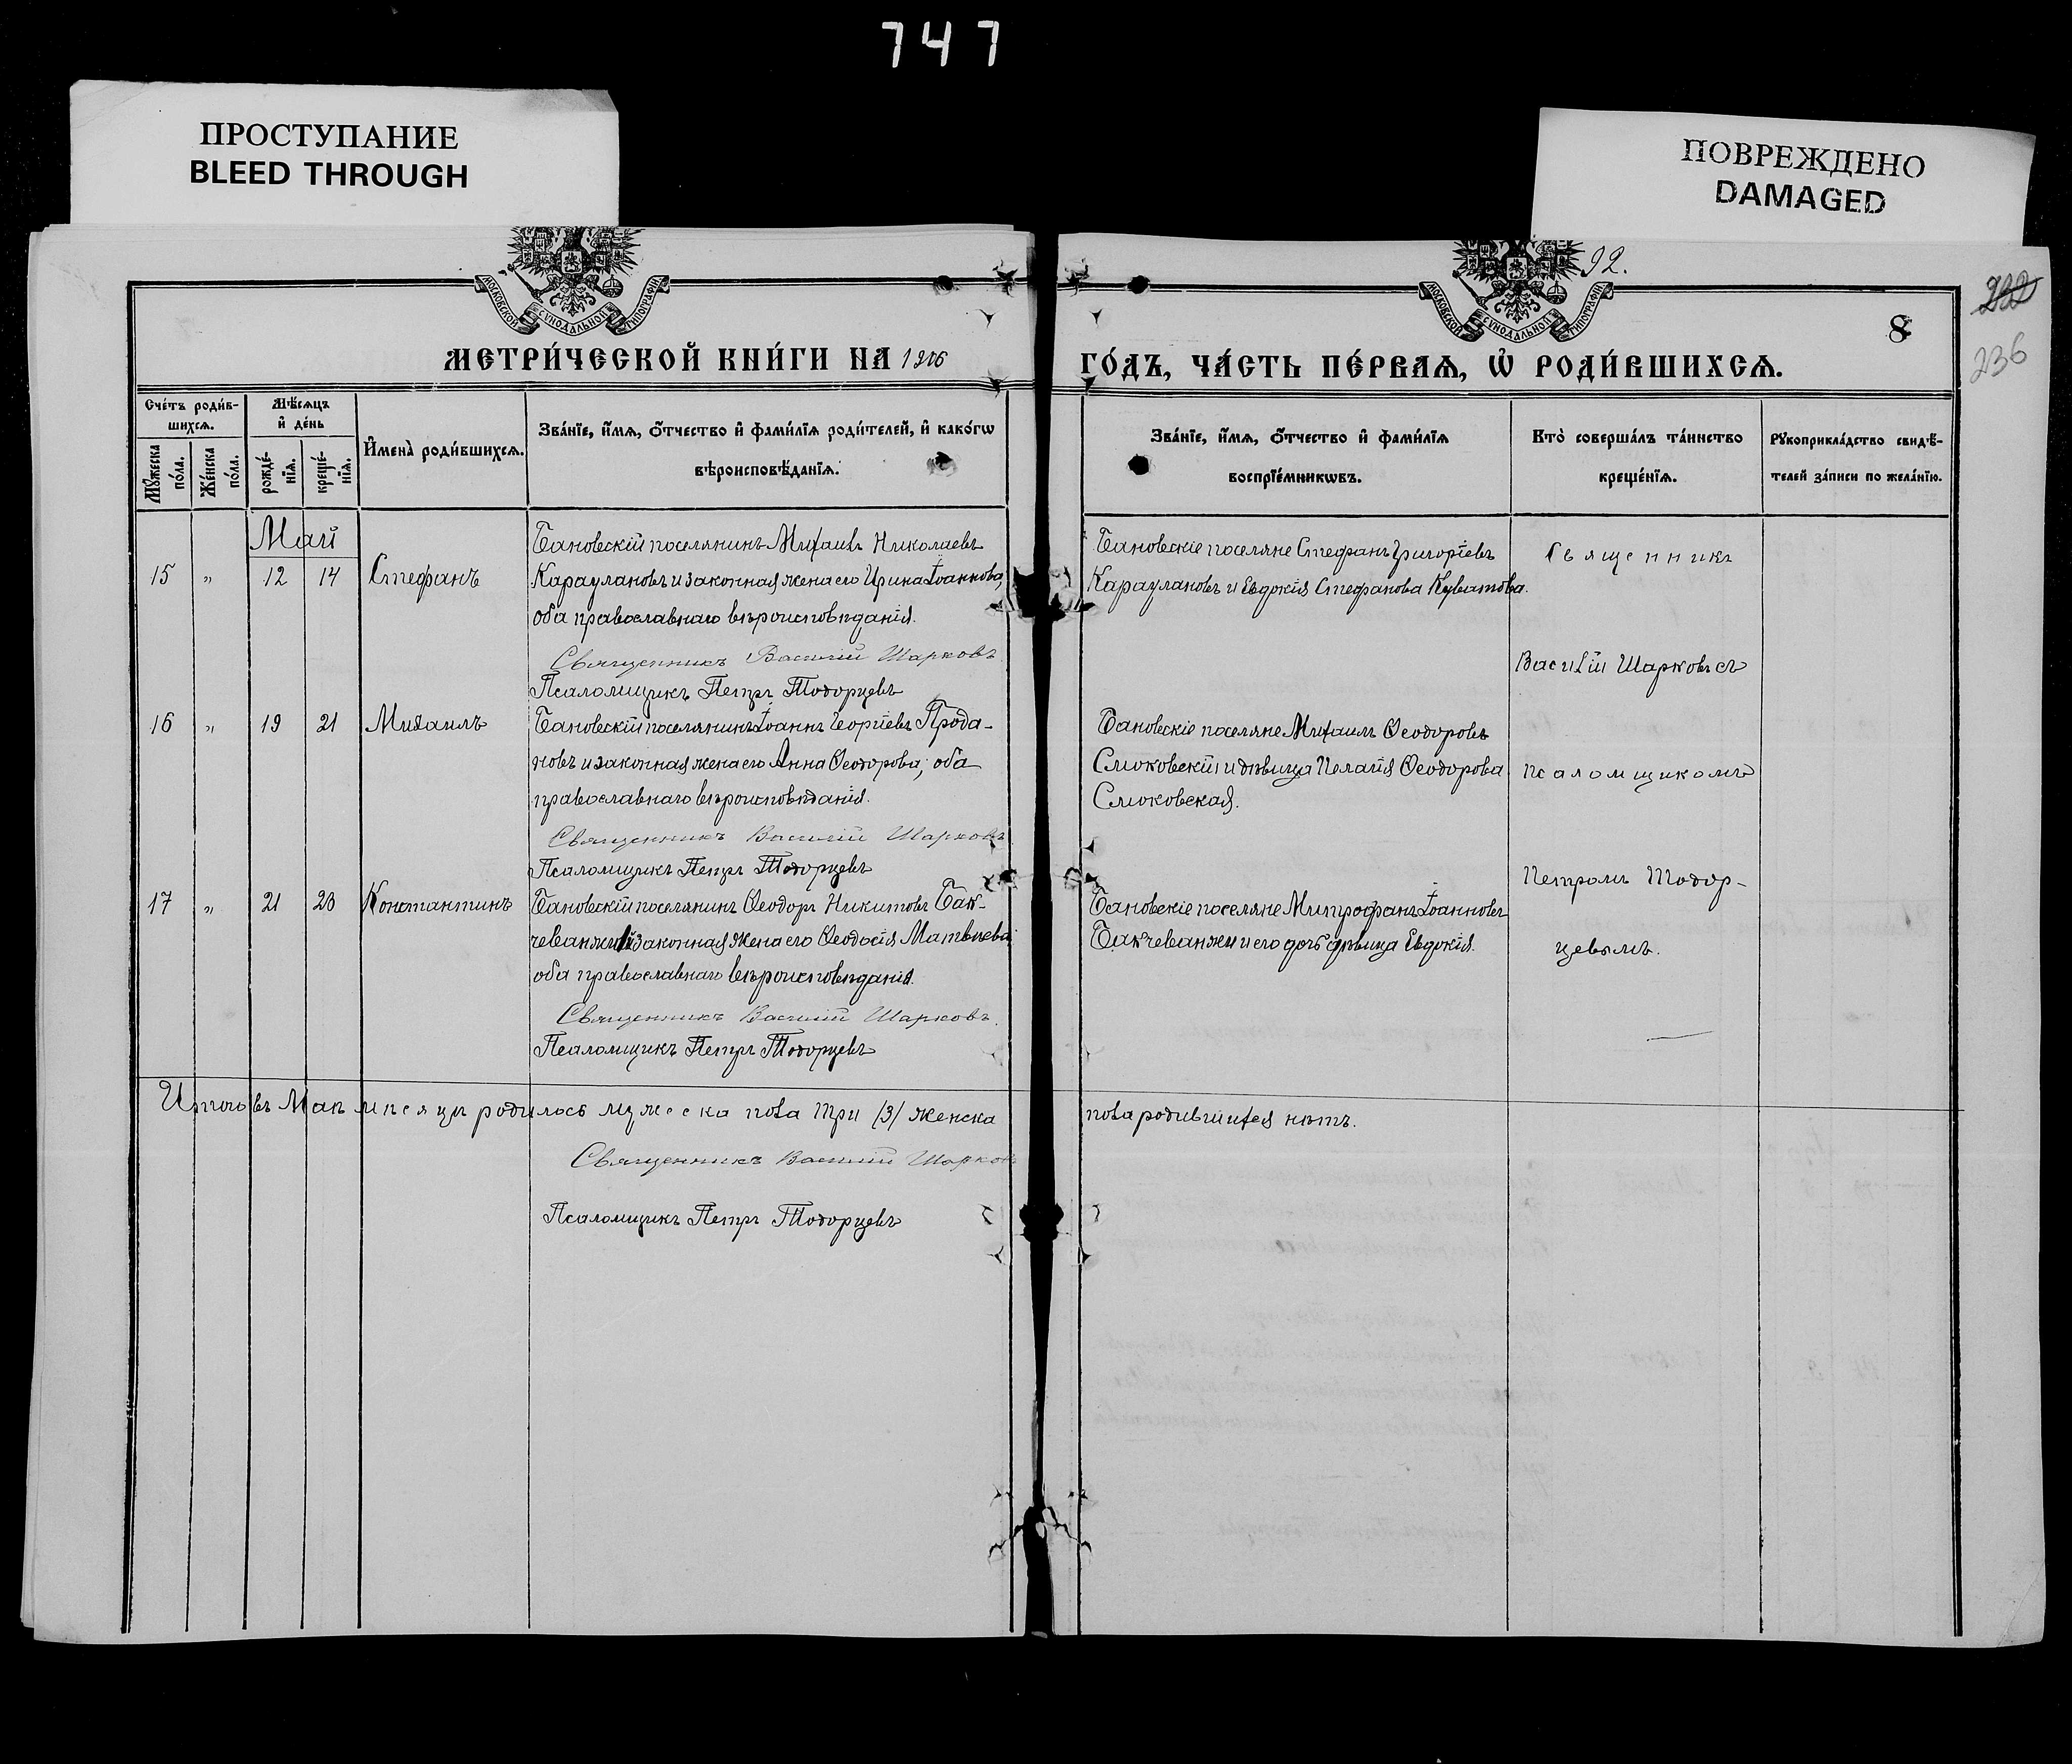 747
ПРОСТУПАНИЕ
BLEED THROUGH
ПОВРЕЖДЕНО
DAMAGED
МОСКОВСКОЙ СѴНОДАЛЬНОЙ ТИПОГРАФІИ
МОСКОВСКОЙ СѴНОДАЛЬНОЙ ТИПОГРАФІИ
92.
8
236
МЕТРИ́ЧЕСКОЙ КНИ́ГИ НА 1906
ГО́ДЪ, ЧА́СТЬ ПЕ́РВАѦ, Ѡ҆ РОДИ́ВШИХСѦ.
Сче́тъ роди́в-
шихсѧ.
Мꙋ́жеска по́ла.
Же́нска по́ла.
Мѣ́сѧцъ
и҆ де́нь
рожде́-
нїѧ.
креще́-
нїѧ.
И҆мена̀ роди́вшихсѧ.
Зва́нїе, и҆́мѧ, ѻ҆́тчество и҆ фами́лїѧ роди́телей, и҆ како́гѡ
вѣроисповѣ́данїѧ.
Зва́нїе, и҆́мѧ, ѻ҆́тчество и҆ фами́лїѧ
воспрїе́мникѡвъ.
Кто̀ соверша́лъ та́инство
креще́нїѧ.
Рꙋкоприкла́дство свидѣ́-
телей за́писи по жела́нїю.
Май
15 " 12 14 Стефанъ
Бановскій поселянинъ Михаилъ Николаевъ
Карауլановъ и законная жена его Ирина Іоаннова,
оба православнаго вѣроисповѣданія.
Священникъ Василій Шарковъ
Псаломщикъ Петръ Тодорцевъ
Бановскіе поселяне Стефанъ Григоріевъ
Каραулановъ и Евдокія Стефанова Куватова.
16 " 19 21 Михаилъ
Бановскій поселянинъ Іоаннъ Георгіевъ Прода-
новъ и законная жена его Анна Ѳеодорова; оба
православнаго вѣроисповѣданія.
Священникъ Василій Шарковъ
Псаломщикъ Петръ Тодорцевъ
Бановскіе поселяне Михаилъ Ѳеодоровъ
Смоковскій и дѣвица Пелагія Ѳеодорова
Смоковская.
17 " 21 23 Константинъ
Бановскій поселянинъ Ѳеодоръ Никитовъ Бак-
чеванжи и законная жена его Ѳеодосія Матвѣева
оба православнаго вѣроисповѣданія.
Священникъ Василій Шарковъ.
Псаломщикъ Петръ Тодорцевъ
Бановскіе поселяне Митрофанъ Іоанновъ
Бакчеванжи и его дочь дѣвица Евдокія.
Священникъ
Василій Шарковъ съ
псаломщикомъ
Петромъ Тодор-
цевымъ.
Итого въ Маѣ мѣсяцѣ родилось мужеска пола три /3/ женска
пола родившихся нѣтъ.
Священникъ Василій Шарков
Псаломщикъ Петръ Тодорцевъ